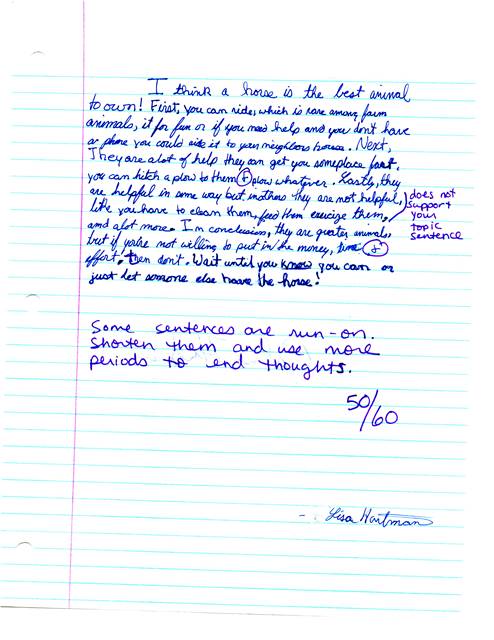 I think a horse is the best animal
to own! First, you can ride, which is rare among farm
animals, it for fun or if you need help and you don't have
a phone you could ride it to your neighbors house. Next,
They are alot of help they can get you someplace fast,
you can hitch a plow to them + plow whatever. Lastly, they
are helpful in some way but in others they are not helpful,
like you have to clean them, feed them exercize them,
and alot more. In conclusion, they are greater animals,
but if you're not willing to put in the money, time +
effort! then don't. Wait until you know you can or
just let someone else have the horse!
does not
support
your
topic
sentence
Some sentences are run-on.
Shorten them and use more
periods to end thoughts.
50/60
Lisa Hartman